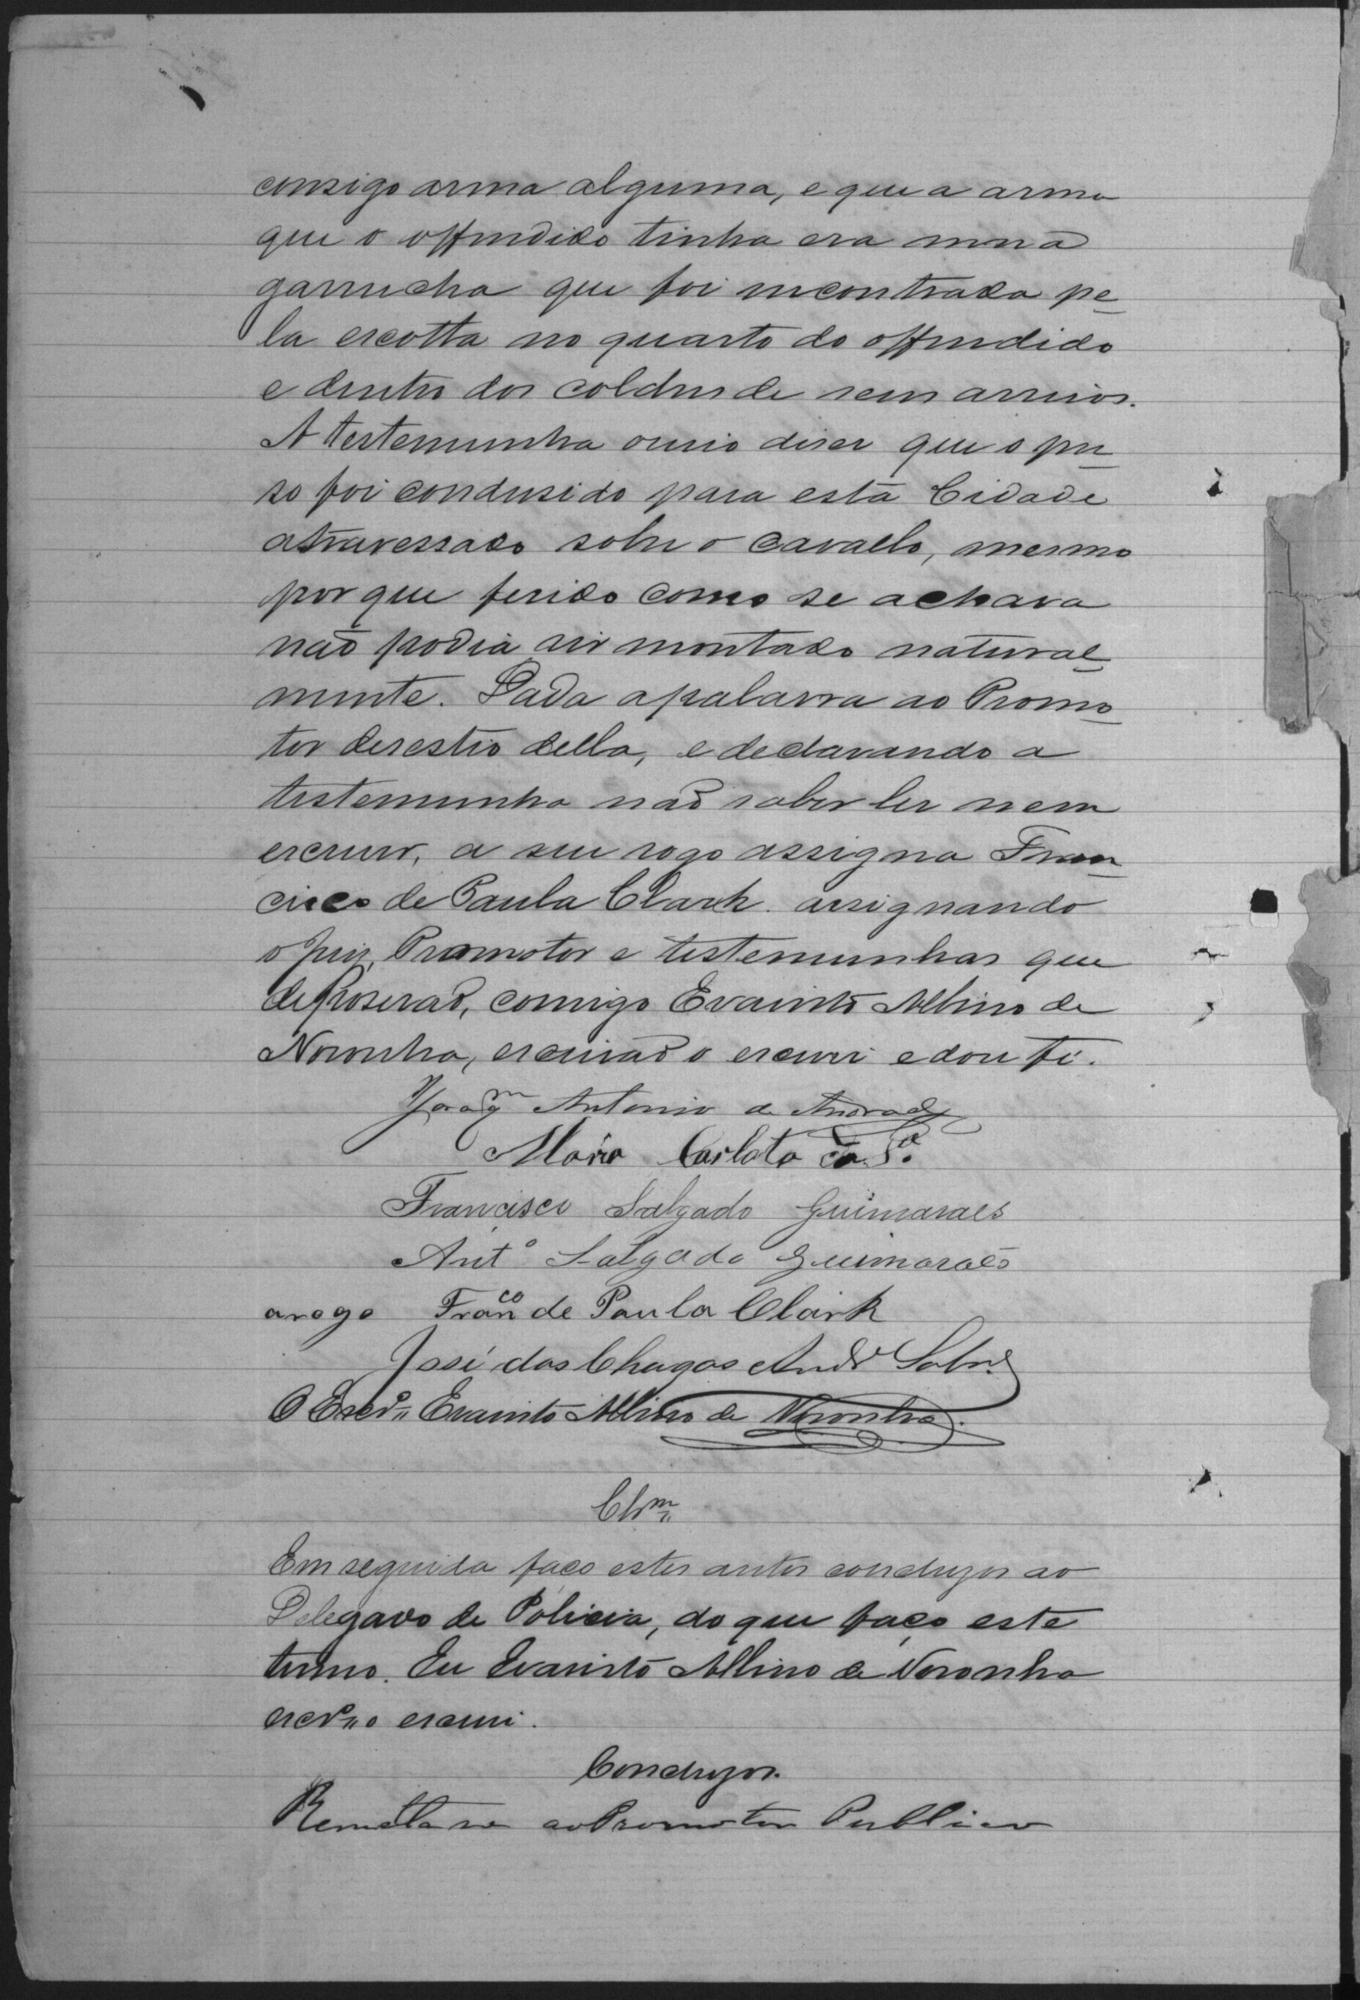 consigo arma alguma, e que a arma
que o offendido tinha era uma
garrucha que foi encontrada pe-
la escolta no quarto do offendido
e dentro dos coldres de seus arreios.
A testemunha ouvio diser que o pre-
so foi condusido para esta Cidade
atravessado sobre o cavallo, mesmo
por que ferido como se achava
não podia vir montado natural-
mente. Dada a palavra ao Promo-
tor desestio della, e declarando a
testemunha não saber ler nem
escrever, a seu rogo assigna Fran-
cisco de Paula Clark. assignando
o juiz, Promotor e testemunhas que
deposerão, comigo Evaristo Albino de
Noronha, escrivão o escrevi e dou fé.
Joaqm Antonio de Andrade
Maria Carlota da Sa.
Francisco Salgado Guimarães
Anto Salgado Guimarães
arogo Franco de Paula Clark
José das Chagas Andre Sobro
O Escrvo Evaristo Albino de Noronha.
Clsm
Em seguida faco estes autos conclusos ao
Delegado de Policia, do que faço este
termo. Eu Evaristo Albino de Noronha
escrvo o escrevi.
Conclusos.
Remetta-se ao Promotor Publico